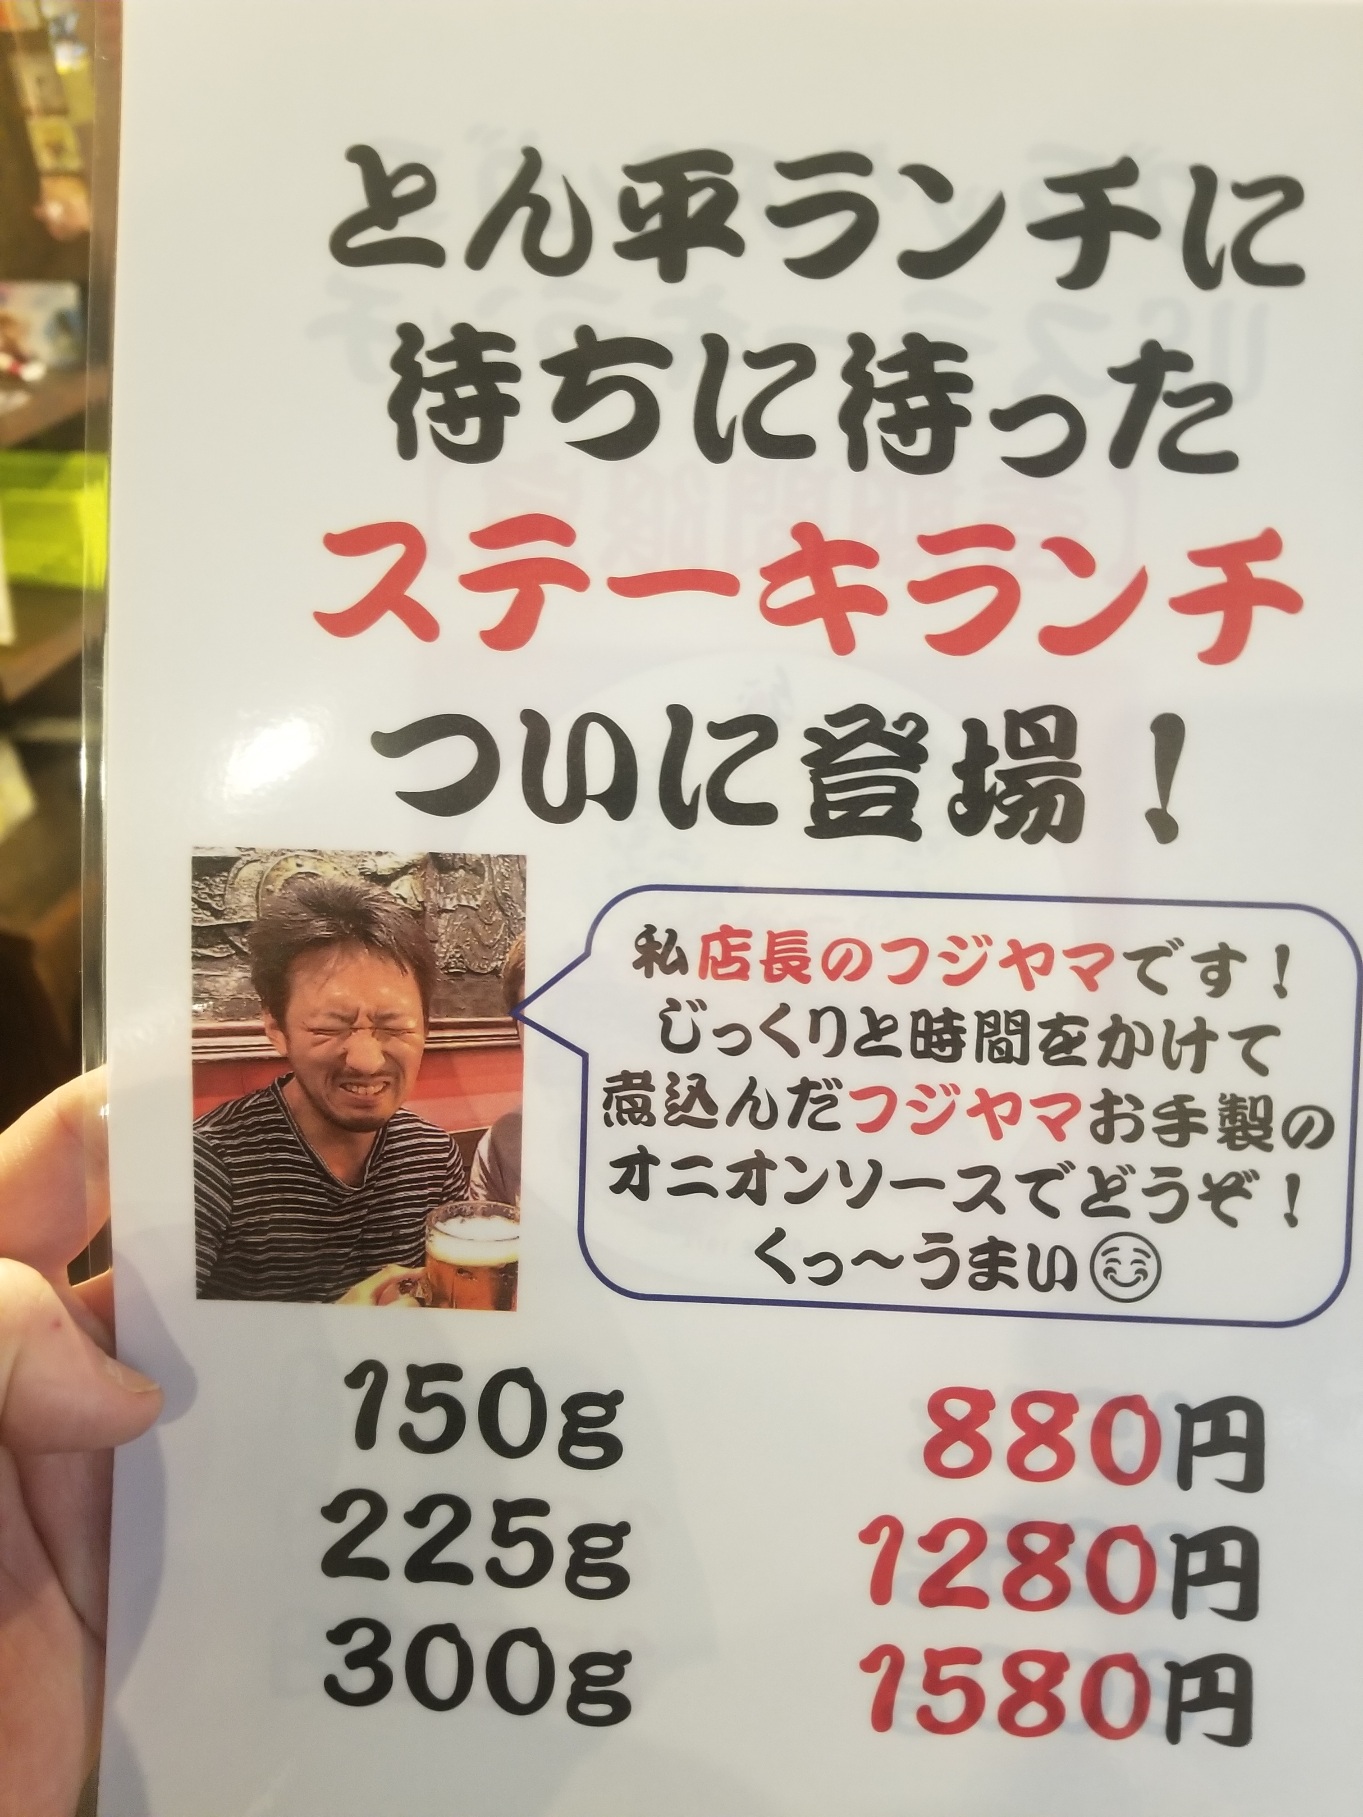 とん平ランチに
待ちに待った
ステーキランチ
ついに登場！
私店長のフジヤマです！
じっくりと時間をかけて
煮込んだフジヤマお手製の
オニオンソースでどうぞ！
くっ～うまい😊
150g 880円
225g 1280円
300g 1580円